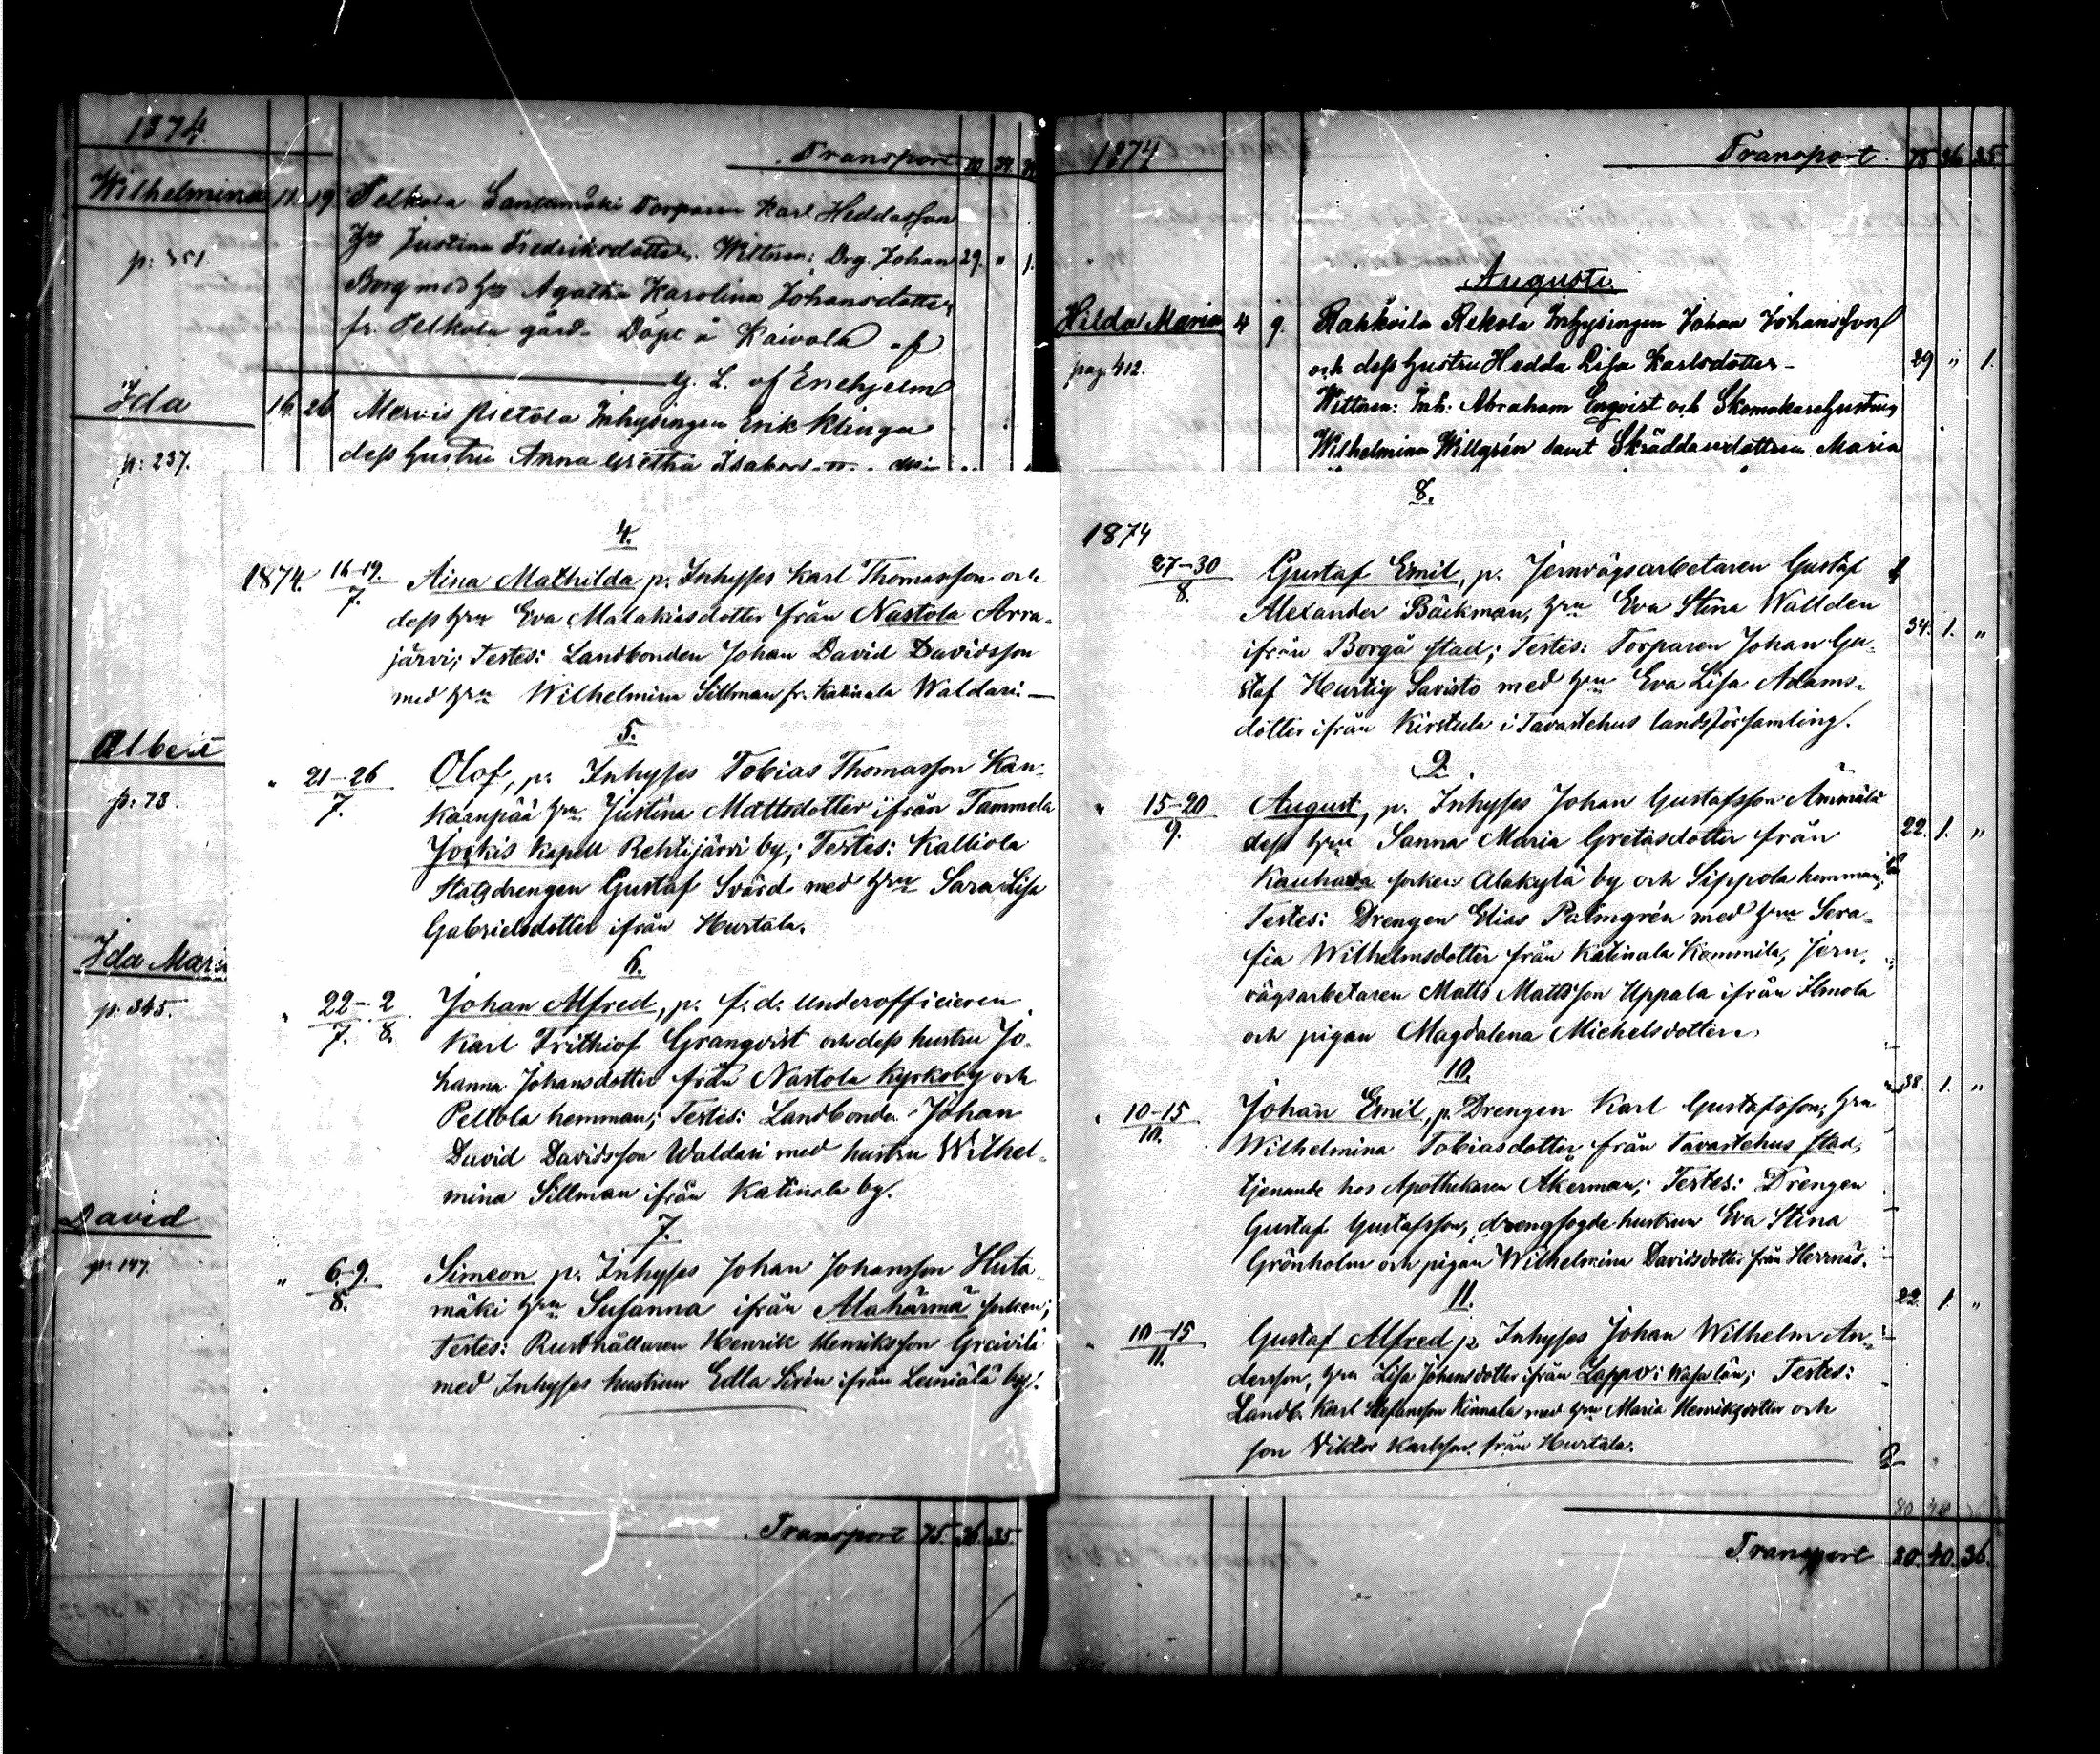 1874.
Transport
Wilhelmina 11. 19. Pelkola Santamäki Torparen Karl Heddasson
Hu Justina Fredriksdotter. Wittnen: Drg. Johan 29. " 1.
p: 351
Borg med Hu Agatha Karolina Johansdotter
fr. Pelkola gård. Döpt å Kaivola af
G. L. af Enehjelm
Ida 16. 26 Mervis Pietola Inhysingen Erik Klinga
p: 237. dess hustru Anna Gretha
4.
1874. 16-19. Aina Mathilda p. Inhyses Karl Thomasson och
7. dess Hru Eva Malakiasdotter från Nastola Arra-
järvi; Testes: Landbonden Johan David Davidsson
med Hru Wilhelmina Sillman fr. Katinala Waldari —
5.
Albert
" 21-26 Olof, p. Inhyses Tobias Thomasson Kan-
p: 78. 7. kaanpää Hru Justina Mattsdotter ifrån Tammela
Jockis Kapell Rehtijärvi by; Testes: Kalliola
Statdrengen Gustaf Svärd med Hru Sara Lisa
Gabrielsdotter ifrån Hurtala.
Ida Maria
6.
p: 345. " 22 - 2 Johan Alfred, p. f.d. underofficieren
7. 8. Karl Frithiof Granqvist och dess hustru Jo-
hanna Johansdotter från Nastola Kyrkoby och
Peltola hemman; Testes: Landbonden Johan
David Davidsson Waldari med hustru Wilhel-
mina Sillman ifrån Katinala by.
David
7.
p: 147. " 6-9. Simeon p. Inhyses Johan Johansson Huta-
8. mäki Hru Susanna ifrån Alahärmä socken;
Testes: Rusthållaren Henrik Henriksson
med Inhyses hustrun Edla Sirén ifrån Leiniälä by.
Transport 75. 36. 35.
1874 Transport 75 36 35.
Augusti.
Hilda Maria 4 9. Rahkoila Rekola Inhysingen Johan Johansson
pag. 412. och dess hustru Hedda Lisa Karlsdotter - 29 " 1.
Wittnen: Inh: Abraham Engvist och Skomakarehustrun
Wilhelmina Willgrén samt Skräddaredottren Maria
8.
1874
27-30 Gustaf Emil, p. Jernvägsarbetaren Gustaf
8. Alexander Bäckman, Hru Eva Stina Wallden
ifrån Borgå stad; Testes: Torparen Johan Gu- 34. 1. "
staf Hurtig Savisto med Hru Eva Lisa Adams-
dotter ifrån Kirstula i Tavastehus landsförsamling.
9.
" 15-20 August, p. Inhyses Johan Gustafsson Ämmälä
9. dess Hru Sanna Maria Gretasdotter från 22. 1. "
Kauhava socken Alakylä by och Sippola hemman;
Testes: Drengen Elias Palmgrén med Hru Sera-
fia Wilhelmsdotter från Katinala Kommila, Jern-
vägsarbetaren Matts Mattsson Uppala ifrån Ilmola
och pigan Magdalena Michelsdotter.
10. 38. 1. "
" 10-15 Johan Emil, p. Drengen Karl Gustafsson; Hru
10. Wilhelmina Tobiasdotter från Tavastehus stad,
tjenande hos Apothekaren Åkerman; Testes: Drengen
Gustaf Gustafsson, drengfogde hustrun Eva Stina
Grönholm och pigan Wilhelmina Davidsdotter från Herrnäs.
11. 22. 1. "
" 10-15 Gustaf Alfred p. Inhyses Johan Wilhelm An-
11. dersson, Hru Lisa Johansdotter ifrån Lappo i Wasa län; Testes:
Landb. Karl Stefansson Kinnala med Hru Maria Henriksdotter och
son Viktor Karlsson från Hurtala.
80 40
Transport 80. 40. 36.